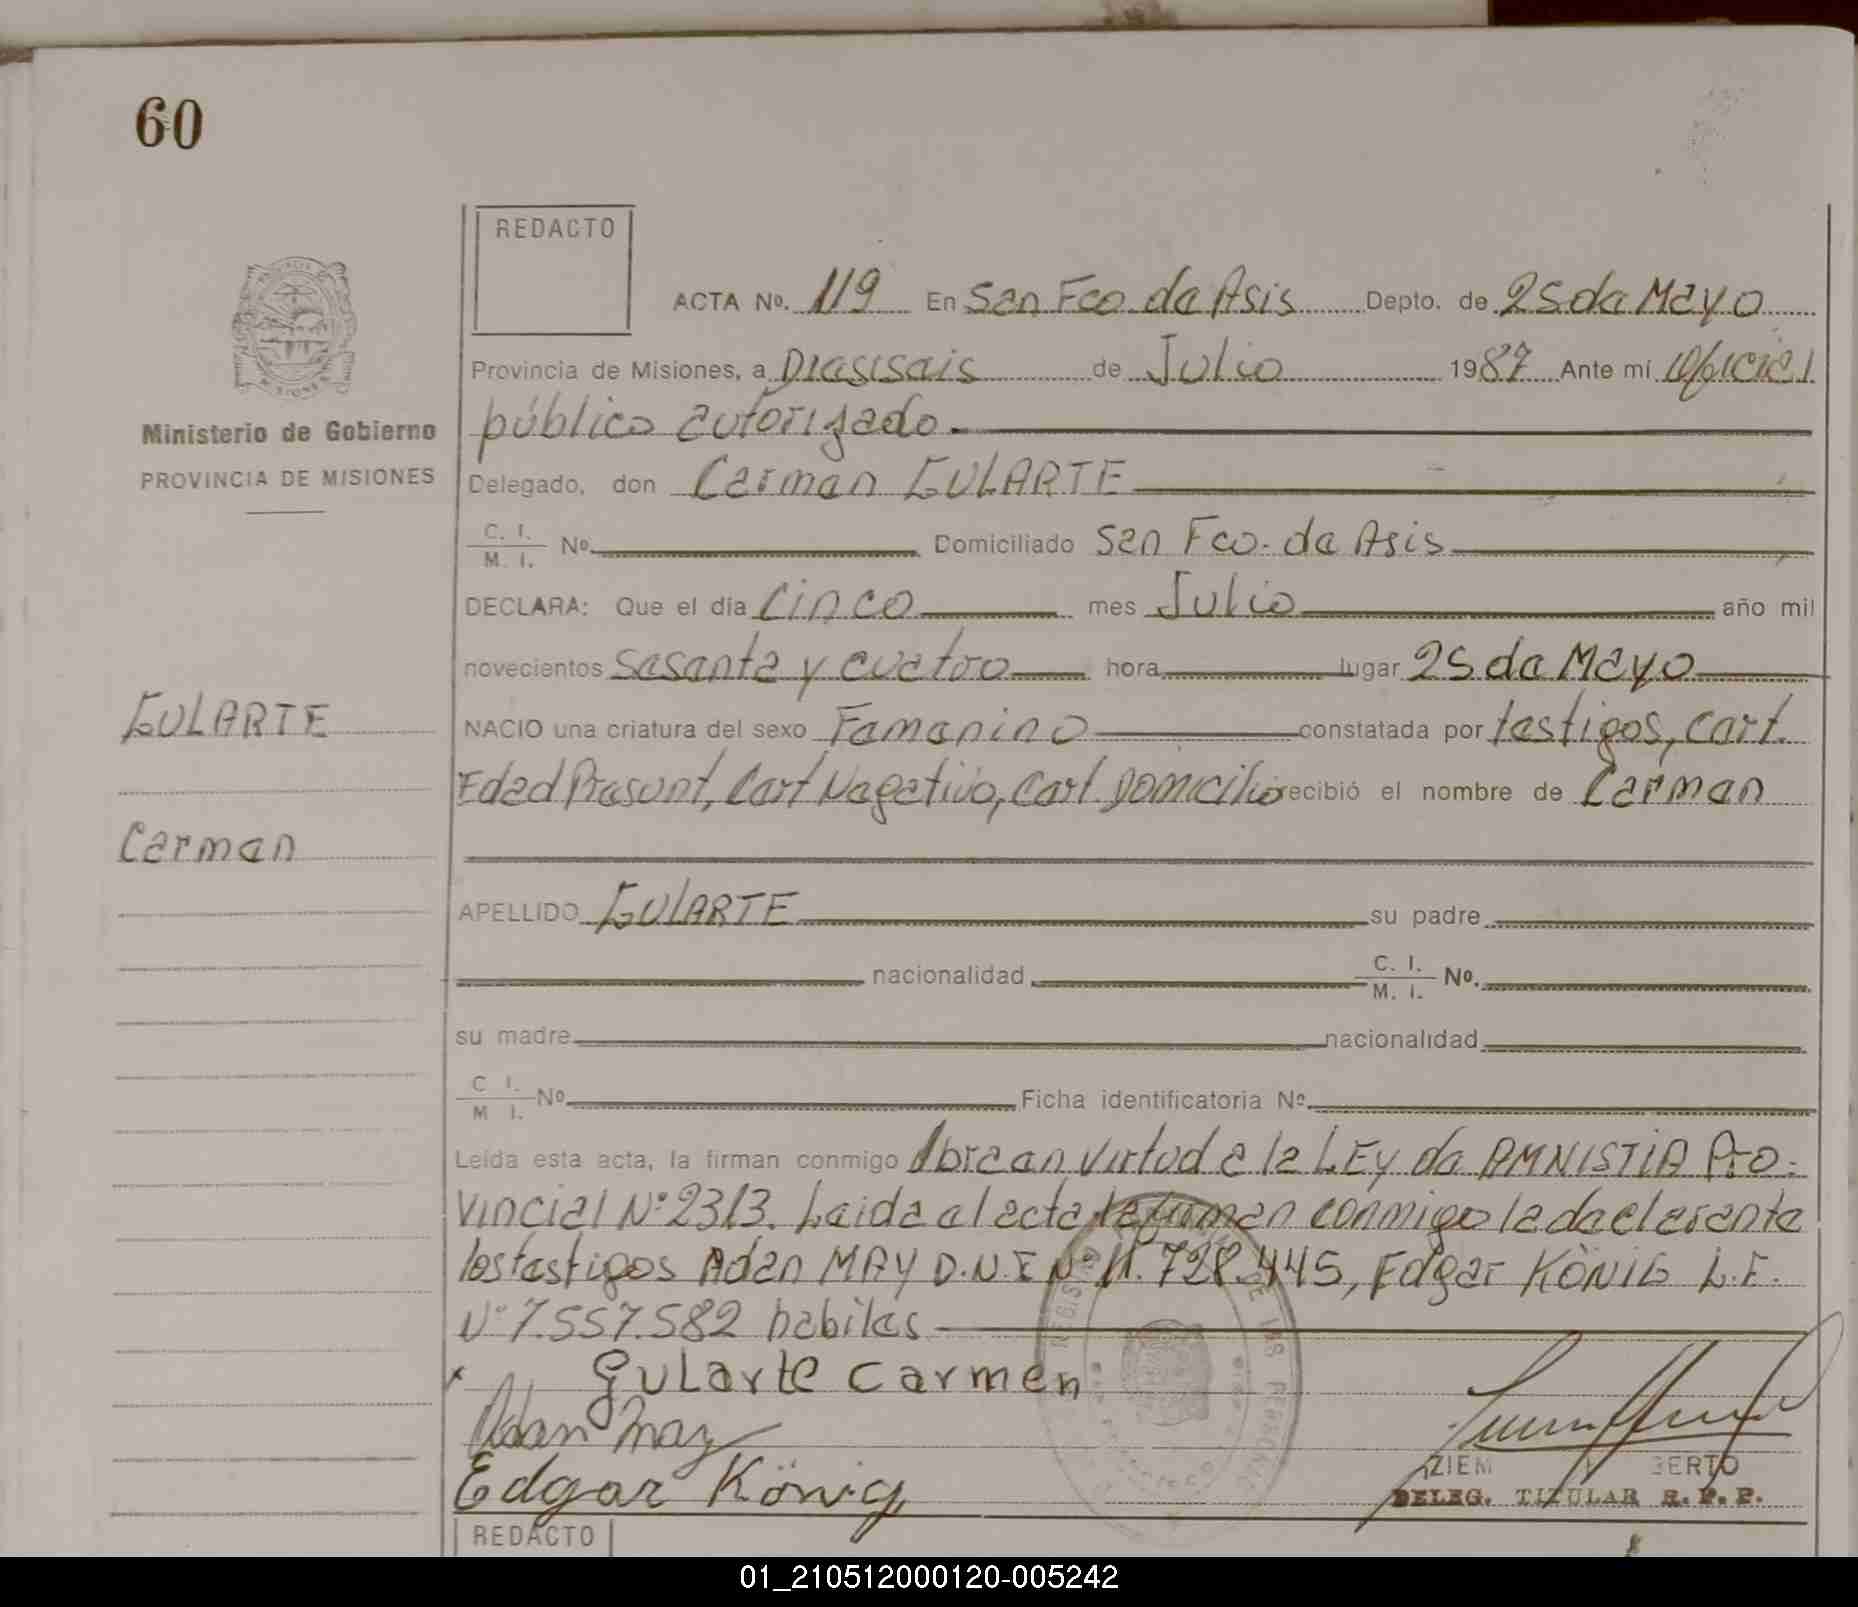 60
REDACTO
ACTA No. 119 En San Fco. de Asis Depto. de 25 de Mayo
Provincia de Misiones, a Diesiseis de Julio 1987 Ante mí Oficial
público autorizado.
Ministerio de Gobierno
PROVINCIA DE MISIONES
Delegado, don Carmen GULARTE
C. I.
M. I. No. Domiciliado San Fco. de Asis
DECLARA: Que el día Cinco mes Julio año mil
novecientos Sesenta y cuatro hora lugar 25 de Mayo
GULARTE
NACIO una criatura del sexo Femenino constatada por testigos, Cert.
Edad Presunt, Cert Negativo, Cert. Domicilio recibió el nombre de Carmen
Carmen
APELLIDO GULARTE su padre
nacionalidad C. I.
M. I. No.
su madre nacionalidad
C I.
M I. No Ficha identificatoria No.
Leída esta acta, la firman conmigo Abre en virtud a la LEY de AMNISTIA Pro-
vincial N° 2313. Leida el acta la firman conmigo la declarante
los testigos Adan MAY D.N.I N° 11.728.445, Edgar KÖNIG L.E.
N° 7.557.582 habiles
x gularte carmen
Adan May
Edgar König
DELEG. TITULAR R. P. P.
REDACTO
01_210512000120-005242